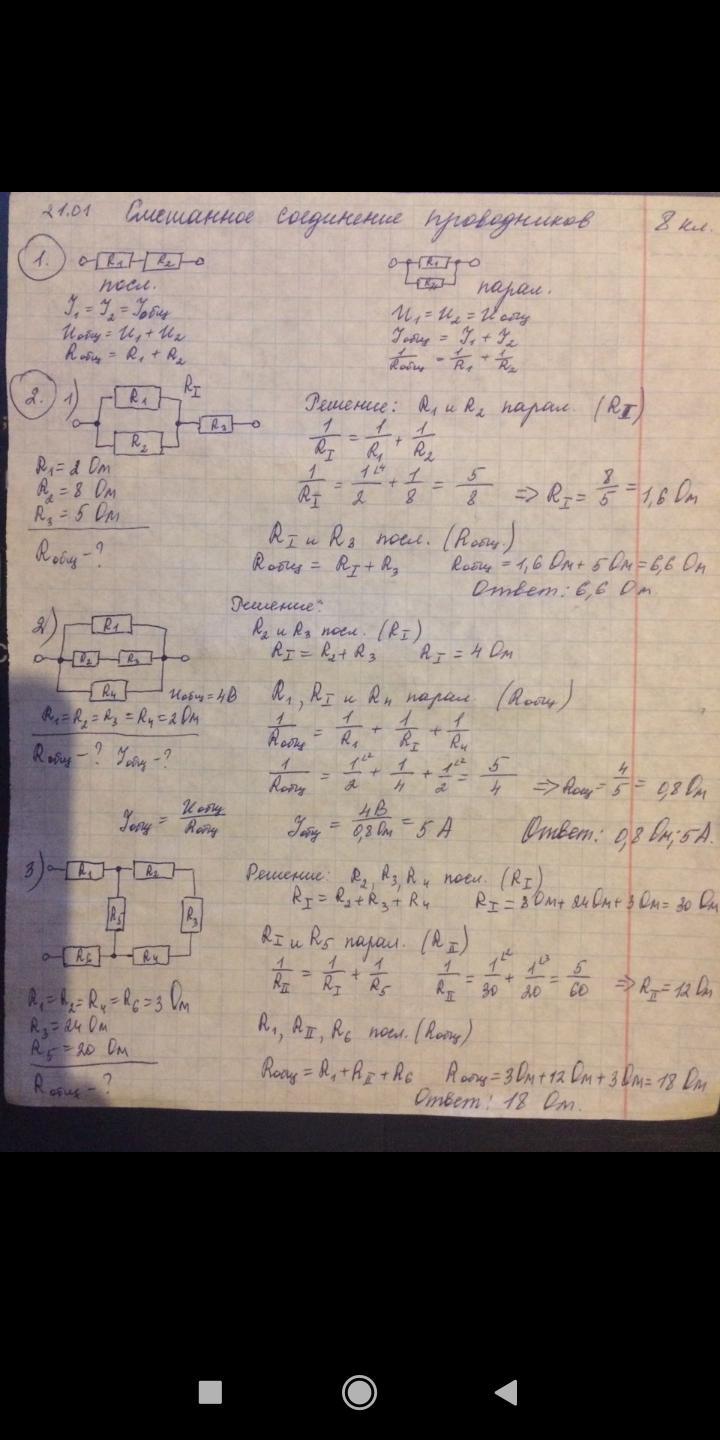 21.01 Смешанное соединение проводников 8 кл.
1. R₁ R₂ R₁ R₂
посл. парал.
I₁ = I₂ = Iобщ U₁ = U₂ = Uобщ
Uобщ = U₁ + U₂ Iобщ = I₁ + I₂
Rобщ = R₁ + R₂ 1/Rобщ = 1/R₁ + 1/R₂
2. 1) R₁ R_I R₂ R₃
Решение: R₁ и R₂ парал. (R_I)
1/R_I = 1/R₁ + 1/R₂
R₁ = 2 Ом
R₂ = 8 Ом
R₃ = 5 Ом
Rобщ - ?
1/R_I = 1^(4)/2 + 1/8 = 5/8 => R_I = 8/5 = 1,6 Ом
R_I и R₃ посл. (Rобщ)
Rобщ = R_I + R₃ Rобщ = 1,6 Ом + 5 Ом = 6,6 Ом
Ответ: 6,6 Ом.
2) R₁ R₂ R₃ R₄ Uобщ = 4В
R₁ = R₂ = R₃ = R₄ = 2 Ом
Rобщ - ? Iобщ - ?
Решение:
R₂ и R₃ посл. (R_I)
R_I = R₂ + R₃ R_I = 4 Ом
R₁, R_I и R₄ парал. (Rобщ)
1/Rобщ = 1/R₁ + 1/R_I + 1/R₄
1/Rобщ = 1^(2)/2 + 1/4 + 1^(2)/2 = 5/4 => Rобщ = 4/5 = 0,8 Ом
Iобщ = Uобщ/Rобщ Iобщ = 4В/0,8 Ом = 5 А Ответ: 0,8 Ом; 5 А.
3) R₁ R₂ R₅ R₃ R₆ R₄
R₁ = R₂ = R₄ = R₆ = 3 Ом
R₃ = 24 Ом
R₅ = 20 Ом
Rобщ - ?
Решение: R₂, R₃, R₄ посл. (R_I)
R_I = R₂ + R₃ + R₄ R_I = 3 Ом + 24 Ом + 3 Ом = 30 Ом
R_I и R₅ парал. (R_II)
1/R_II = 1/R_I + 1/R₅ 1/R_II = 1^(2)/30 + 1^(3)/20 = 5/60 => R_II = 12 Ом
R₁, R_II, R₆ посл. (Rобщ)
Rобщ = R₁ + R_II + R₆ Rобщ = 3 Ом + 12 Ом + 3 Ом = 18 Ом
Ответ: 18 Ом.